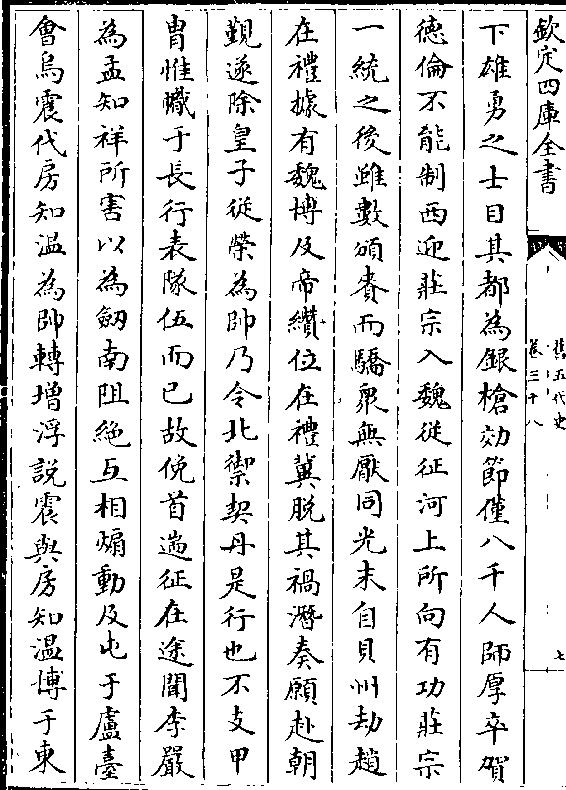 欽定四庫全書
舊五代史
卷三十八
七
下雄勇之士目其都為銀槍効節僅八千人師厚卒賀
德倫不能制西迎莊宗入魏從征河上所向有功莊宗
一統之後雖數頒賚而驕衆無厭同光末自貝州劫趙
在禮據有魏博及帝纘位在禮冀脫其禍潛奏願赴朝
覲遂除皇子從榮為帥乃令北禦契丹是行也不支甲
胄惟幟于長行表隊伍而已故俛首遄征在途聞李嚴
為孟知祥所害以為劒南阻絶互相煽動及屯于盧臺
會烏震代房知溫為帥轉增浮說震與房知溫博于東